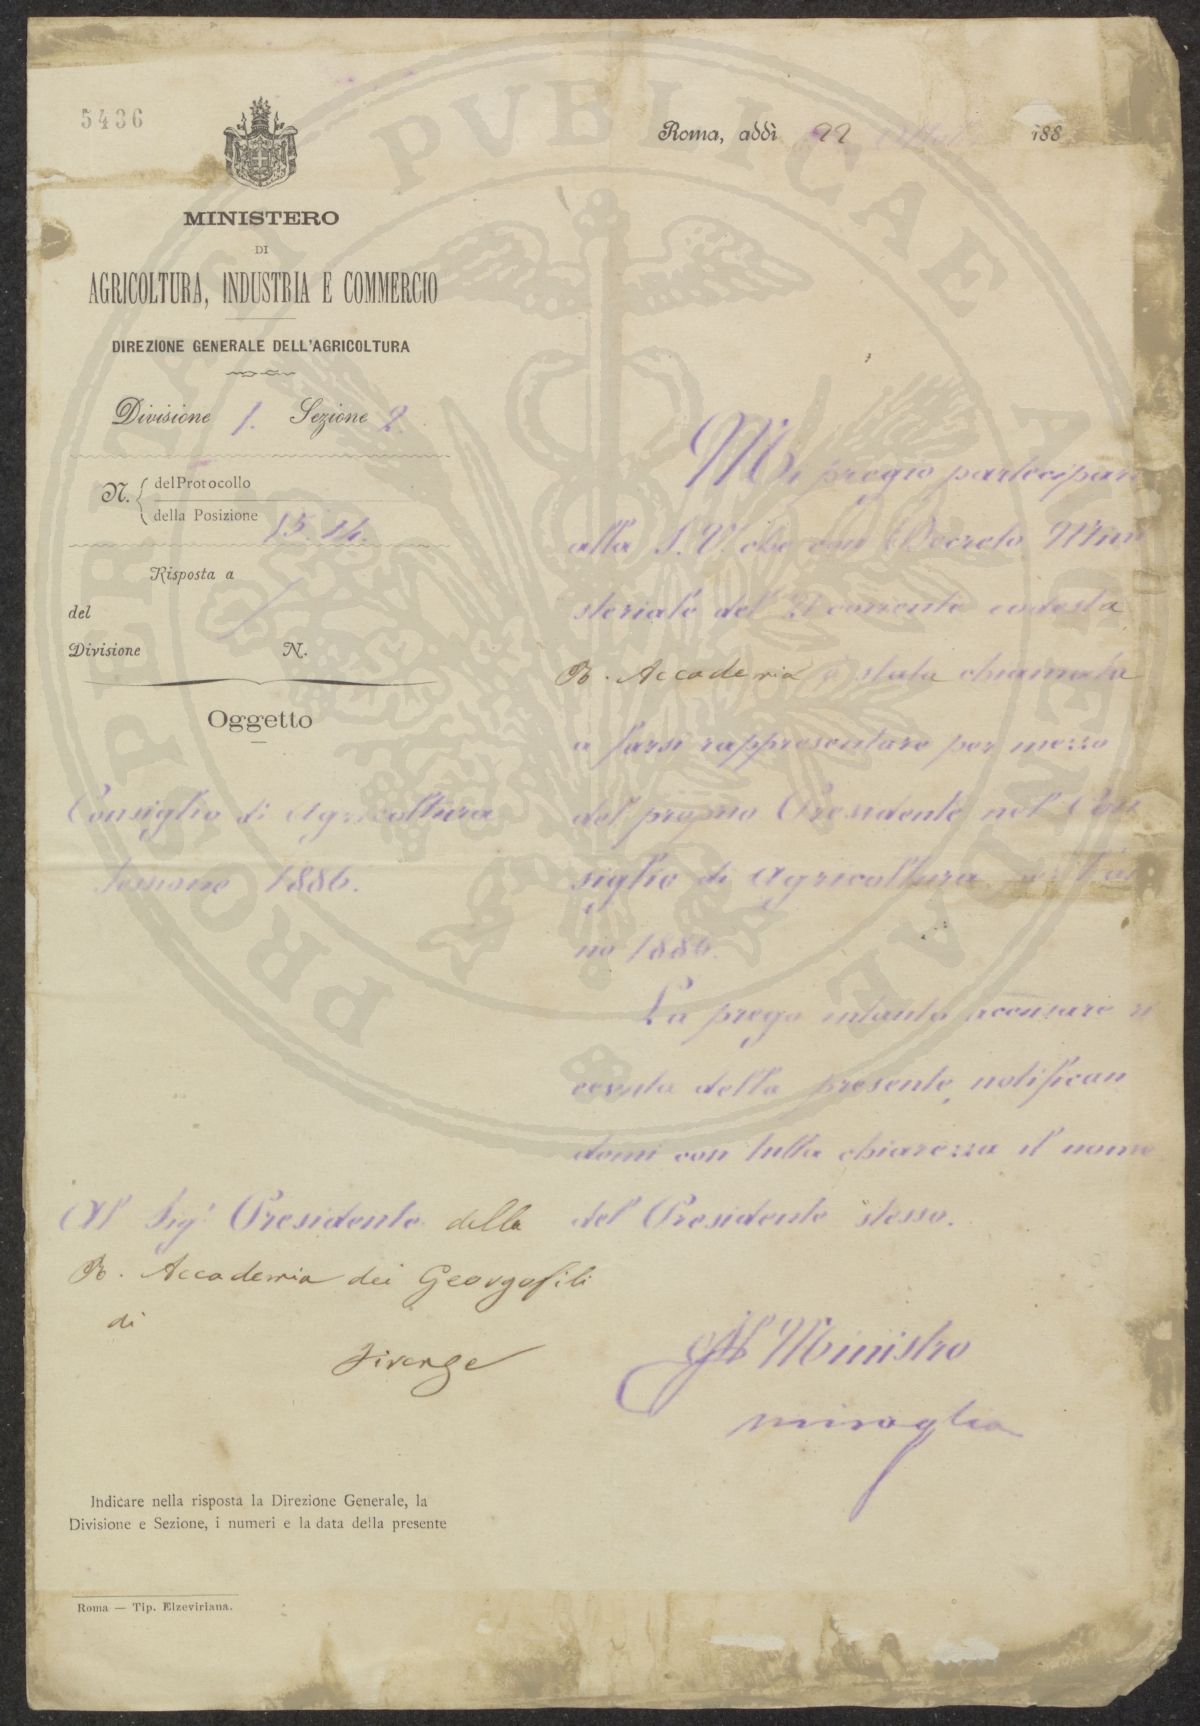 5436
Roma, addì 22 188
MINISTERO
DI
AGRICOLTURA, INDUSTRIA E COMMERCIO
DIREZIONE GENERALE DELL'AGRICOLTURA
Divisione 1. Sezione 2.
N. { del Protocollo
della Posizione 15.14.
Risposta a
del
Divisione N.
Oggetto
Consiglio di Agricoltura
Sessione 1886.
Mi pregio partecipar
alla S. V. che con Decreto Min
steriale del 21 corrente codesta
R. Accademia è stata chiamata
a farsi rappresentare per mezzo
del proprio Presidente nel Con
siglio di Agricoltura per l'an
no 1886.
La prego intanto accusare ri
cevuta della presente, notifican
domi con tutta chiarezza il nome
del Presidente stesso.
Al Sigr Presidente della
R. Accademia dei Georgofili
di
Firenze
Il Ministro
Miraglia
Indicare nella risposta la Direzione Generale, la
Divisione e Sezione, i numeri e la data della presente
Roma — Tip. Elzeviriana.
PROSPERITATI PVBLICAE AVGENDAE